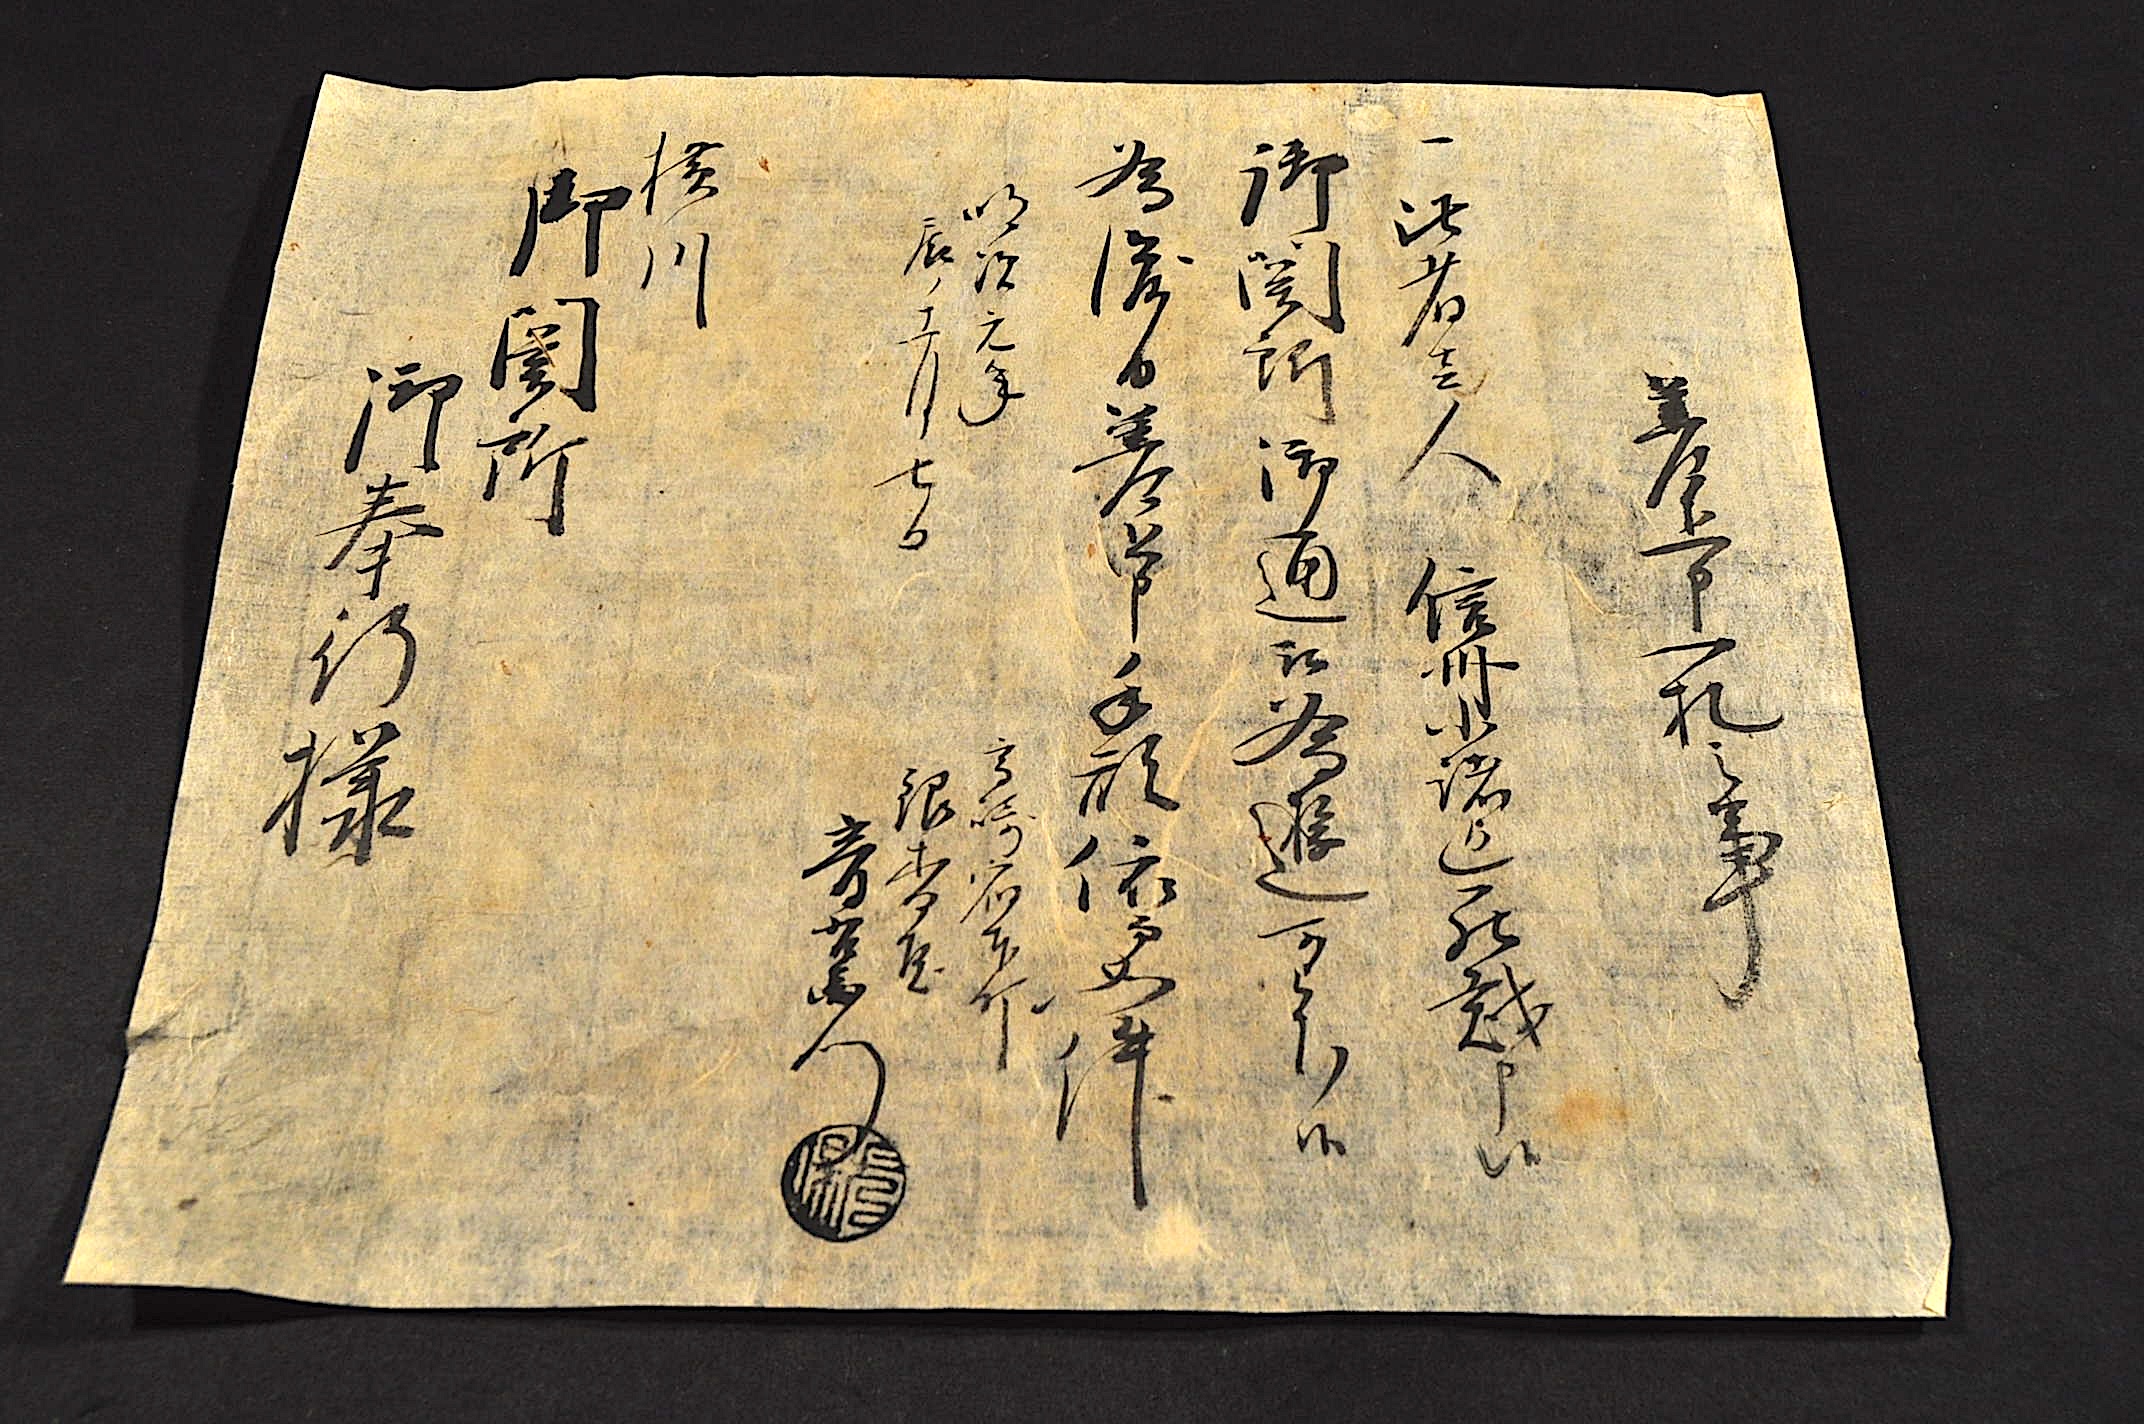 差上申一札之事
一此者壱人 信州小諸迄罷越申候
御関所御通被為遊可被下候
為後日差上申手形依而如件
明治元年
辰ノ十一月七日
高崎宿本町
銀杏屋
音右衛門
横川
御関所
御奉行様